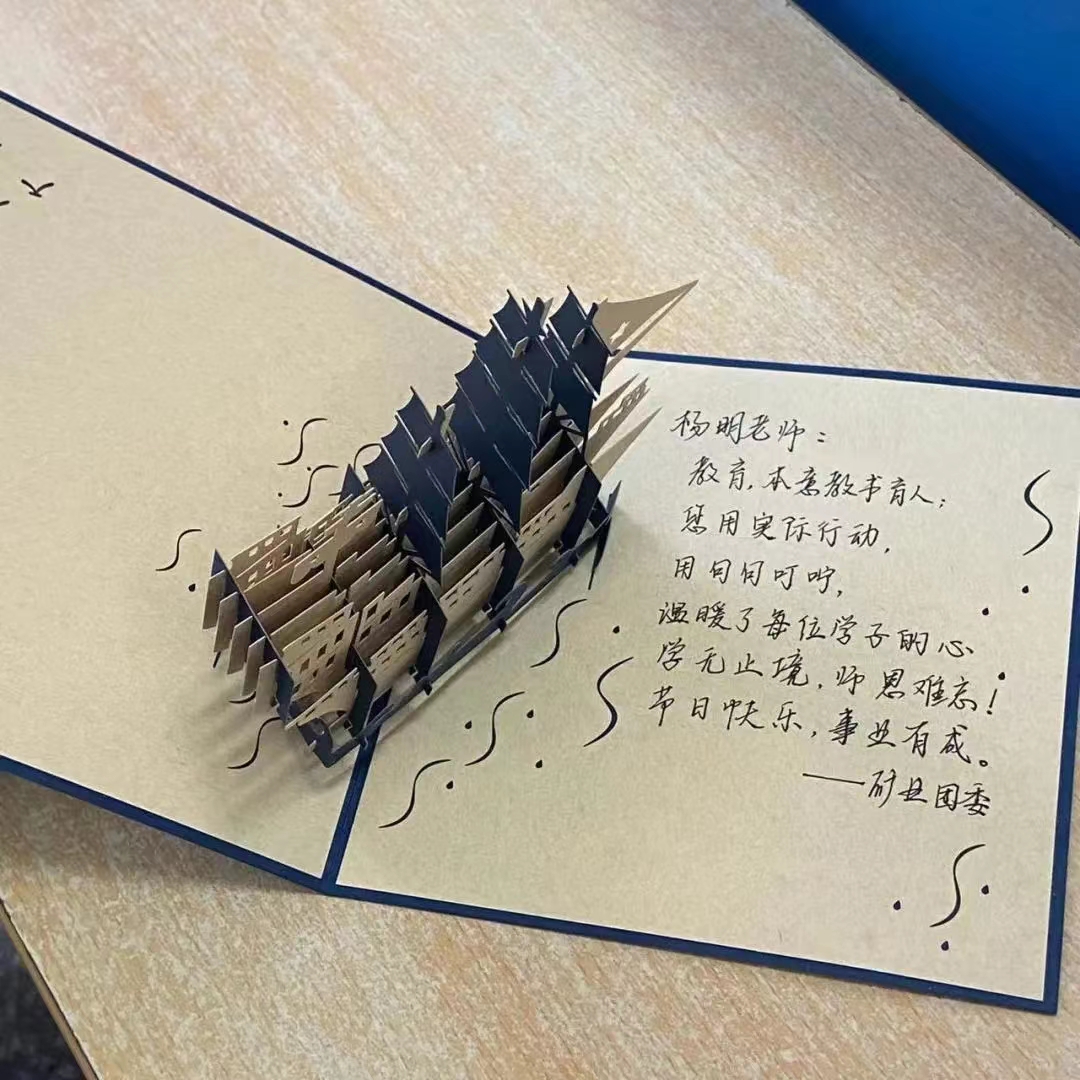 杨明老师：
教育，本意教书育人；
您用实际行动，
用句句叮咛，
温暖了每位学子的心
学无止境，师恩难忘！
节日快乐，事业有成。
——研且团委